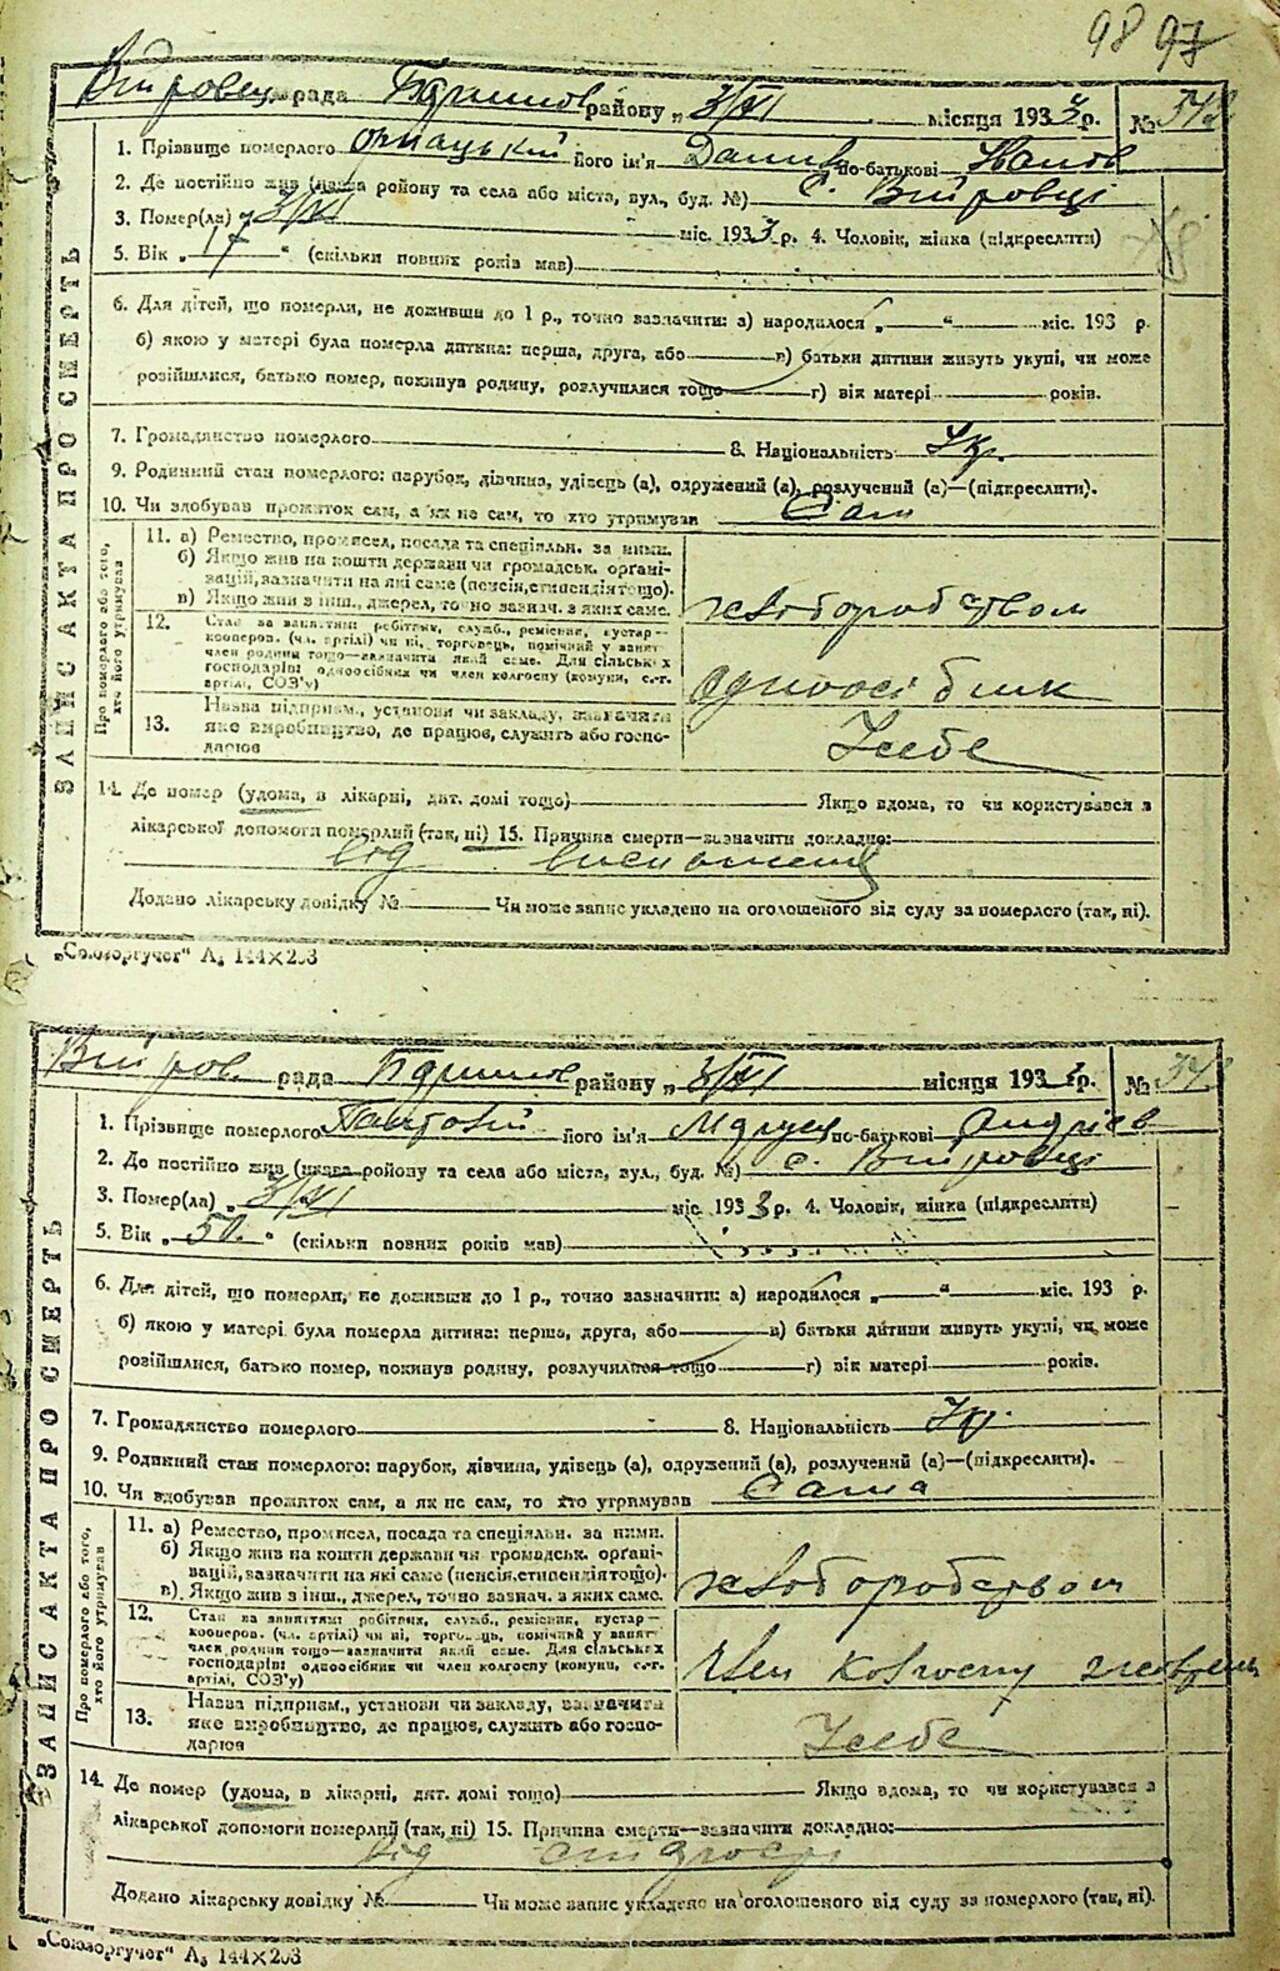 98 97
рада района „3/VI місяця 1933 р. №
1. Прізвище померлого його ім'я Данило по-батькові Іванов
2. Де постійно жив (назва району та села або міста, вул., буд. №) с.
3. Помер(ла) „3/VI міс. 1933 р. 4. Чоловік, жінка (підкреслити)
5. Вік „17“ (скільки повних років мав)
6. Для дітей, що померли, не доживши до 1 р., точно зазначити: а) народилося „ “ міс. 193 р.
б) якою у матері була померла дитина: перша, друга, або в) батьки дитини живуть укупі, чи може
розійшлися, батько помер, покинув родину, розлучилися тощо г) вік матері років.
7. Громадянство померлого 8. Національність Укр.
9. Родинний стан померлого: парубок, дівчина, удівець (а), одружений (а), розлучений (а)—(підкреслити).
10. Чи здобував прожиток сам, а як не сам, то хто утримував Сам
ЗАПИС АКТА ПРО СМЕРТЬ
Про померлого або того, хто його утримував
11. а) Ремество, промисел, посада та спеціяльн. за ними.
б) Якщо жив на кошти держави чи громадськ. органі-
зацій, зазначити на які саме (пенсія, стипендія тощо).
в) Якщо жив з інш., джерел, точно зазнач. з яких саме.
хлібороб ством
12. Стан за заняттями робітник, служб., ремісник, кустар—
кооперов. (чл. артілі) чи ні, торговець, помічний у занят.
член родини тощо—зазначити який саме. Для сільських
господарів: одноосібник чи член колгоспу (комуни, с.-г.
артілі, СОЗ'у)
одноосібник
13. Назва підприєм., установи чи закладу, зазначити
яке виробництво, де працює, служить або госпо-
дарює
У себе
14. Де помер (удома, в лікарні, дит. домі тощо) Якщо вдома, то чи користувався з
лікарської допомоги померлий (так, ні) 15. Причина смерти—зазначити докладно:
від
Додано лікарську довідку № Чи може запис укладено на оголошеного від суду за померлого (так, ні).
„Союзоргучет“ А₅ 144×203
рада району „3/VI місяця 1933 р. №
1. Прізвище померлого його ім'я по-батькові Андріев
2. Де постійно жив (назва району та села або міста, вул., буд. №) с.
3. Помер(ла) „3/VI міс. 1933 р. 4. Чоловік, жінка (підкреслити)
5. Вік „50.“ (скільки повних років мав)
6. Для дітей, що померли, не доживши до 1 р., точно зазначити: а) народилося „ “ міс. 193 р.
б) якою у матері була померла дитина: перша, друга, або в) батьки дитини живуть укупі, чи може
розійшлися, батько помер, покинув родину, розлучилися тощо г) вік матері років.
7. Громадянство померлого 8. Національність Укр.
9. Родинний стан померлого: парубок, дівчина, удівець (а), одружений (а), розлучений (а)—(підкреслити).
10. Чи здобував прожиток сам, а як не сам, то хто утримував Сама
ЗАПИС АКТА ПРО СМЕРТЬ
Про померлого або того, хто його утримував
11. а) Ремество, промисел, посада та спеціяльн. за ними.
б) Якщо жив на кошти держави чи громадськ. органі-
зацій, зазначити на які саме (пенсія, стипендія тощо).
в) Якщо жив з інш., джерел, точно зазнач. з яких саме.
хлібороб ством
12. Стан за заняттями робітник, служб., ремісник, кустар—
кооперов. (чл. артілі) чи ні, торговець, помічний у занят.
член родини тощо—зазначити який саме. Для сільських
господарів: одноосібник чи член колгоспу (комуни, с.-г.
артілі, СОЗ'у)
член колгоспу
13. Назва підприєм., установи чи закладу, зазначити
яке виробництво, де працює, служить або госпо-
дарює
У себе
14. Де помер (удома, в лікарні, дит. домі тощо) Якщо вдома, то чи користувався з
лікарської допомоги померлий (так, ні) 15. Причина смерти—зазначити докладно:
від
Додано лікарську довідку № Чи може запис укладено на оголошеного від суду за померлого (так, ні).
„Союзоргучет“ А₅ 144×203